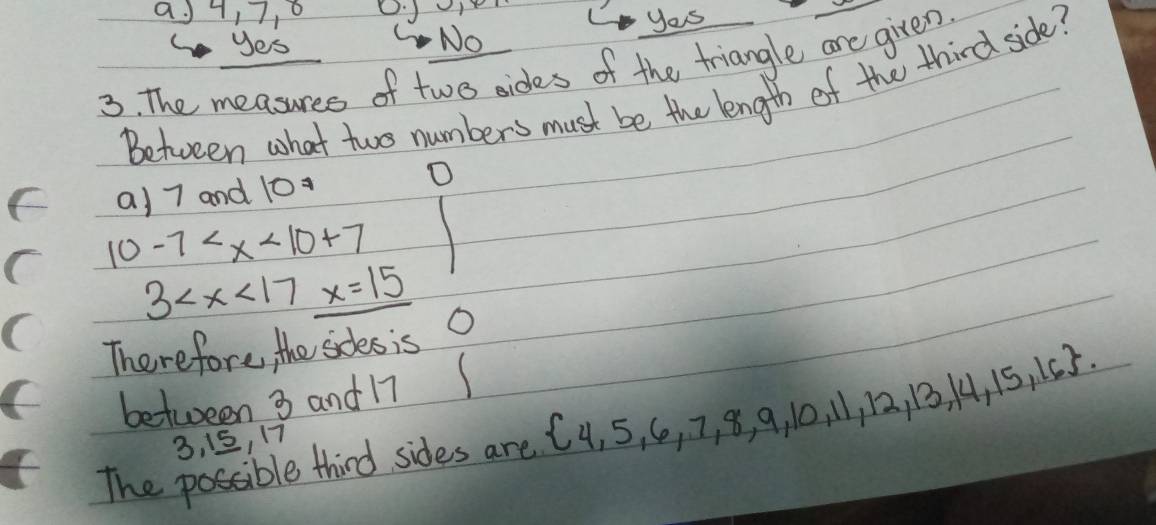 a) 4, 7, 8
↳ Yes ↳ No ↳ Yes
3. The measures of two sides of the triangle are given.
Between what two numbers must be the length of the third side?
a) 7 and 10
10 - 7 < x < 10 + 7
3 < x < 17 x = 15
Therefore, the sides is
between 3 and 17
3, 15, 17
The possible third sides are {4, 5, 6, 7, 8, 9, 10, 11, 12, 13, 14, 15, 16}.